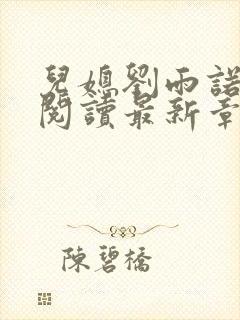 兒媳劉雨諾
閱讀最新章
陳碧橋